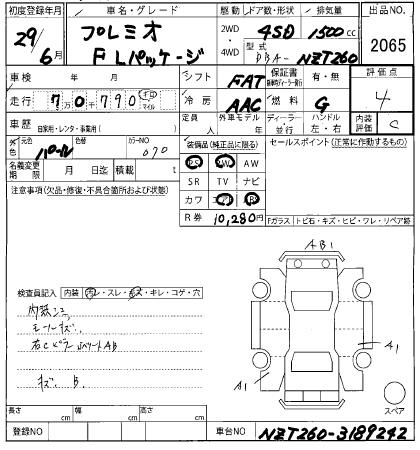 初度登録年月
29年
6月
車名・グレード
プレミオ
FLパッケージ
駆動
2WD
・
4WD
ドア数・形状
4SD
排気量
1500cc
型式
DBA-
NZT260
出品NO.
2065
車検 年 月
シフト
FAT
保証書
有・無
評価点
4
走行
7万0千790
キロ
マイル
冷房
AAC
燃料
G
車歴
自家用・レンタ・事業用( )
定員
人
外車モデル
年
ディーラー
・
並行
ハンドル
左・右
内装
評価
C
外色
元色
パール
色替
カラーNO
070
名義変更
期限
月 日迄
積載
t
装備品(純正品に限る)
PS PW AW
SR TV ナビ
カワ エアB ABS
R券 10,280円
セールスポイント(正常に作動するもの)
Fガラス トビ石・キズ・ヒビ・ワレ・リペア跡
注意事項(欠品・修復・不具合箇所および状態)
検査員記入
内装 汚レ・スレ・キズ・キレ・コゲ・穴
モールキズ.
右Cピラー
AB
キズ. B.
AB1
A1
A1
スペア
長さ cm
幅 cm
高さ cm
登録NO
車台NO
NZT260-3189242